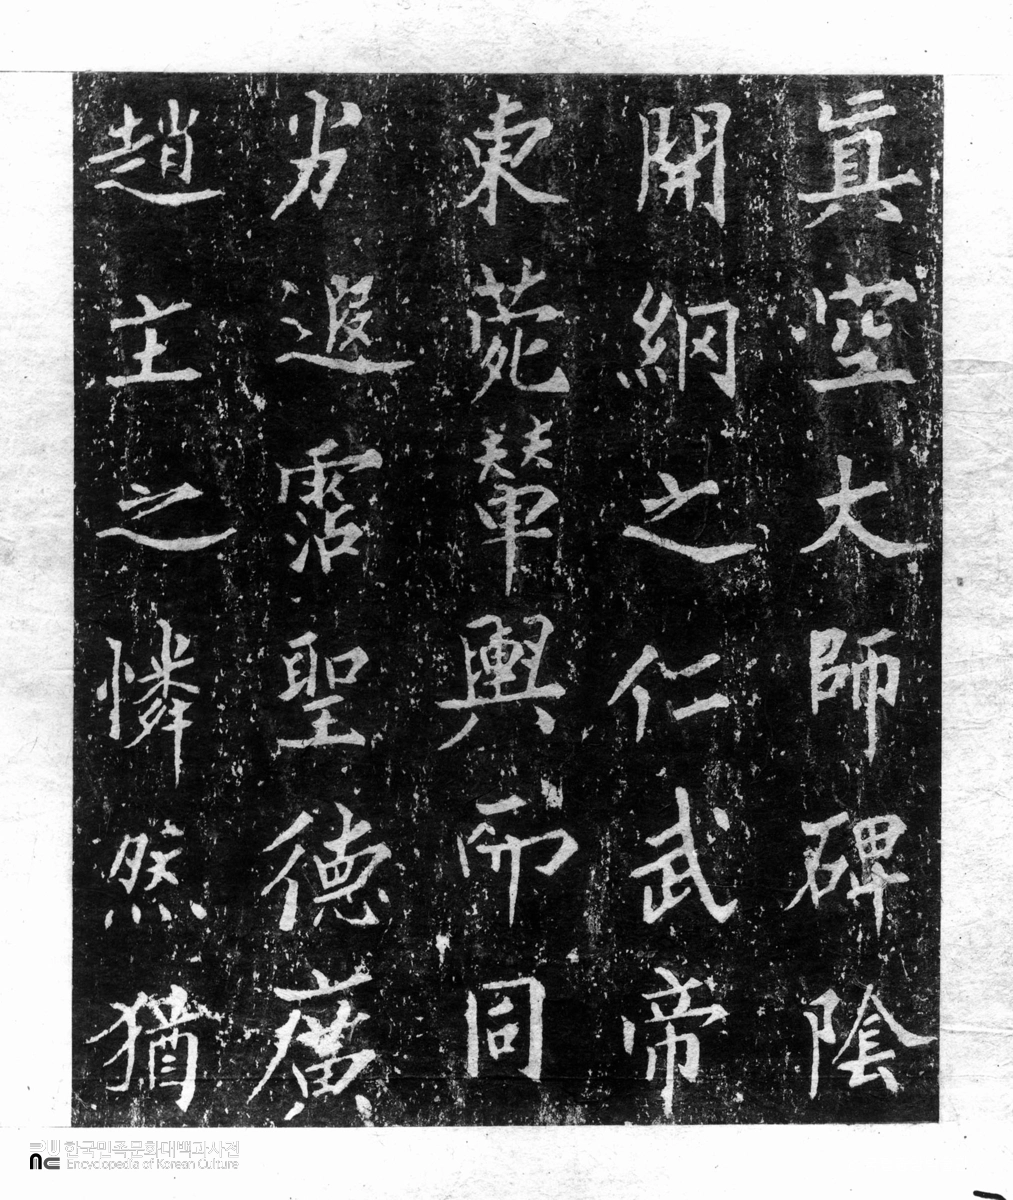 真空大師碑陰
開網之仁武帝
東菀輦輿所同
劣遐霑聖德廣
趙主之憐然猶
한국민족문화대백과사전
Encyclopedia of Korean Culture